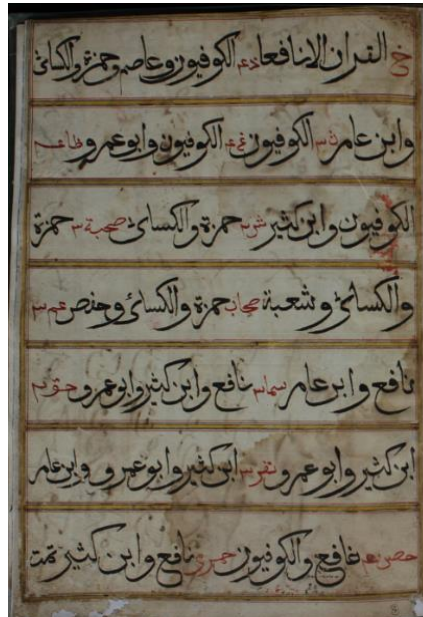 خ القران الا نافعا ذ الكوفيون وعاصم وحمزة والكسائ
وابن عامر الكوفيون غ الكوفيون وابوعمرو ظ
الكوفيون وابن كثير ش حمزة والكسائ صحبة حمزة
والكسائ وشعبة صحاب حمزة والكسائ وحفص عم
نافع وابن عامر سما نافع وابن كثير وابوعمرو حق
ابن كثير وابوعمرو نفر ابن كثير وابوعمرو وابن عامر
حصن نافع والكوفيون حرمى نافع وابن كثير تمت